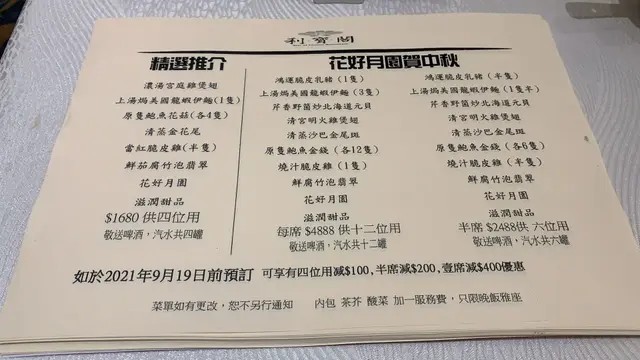 利寶閣
精選推介
濃湯宮庭雞煲翅
上湯焗美國龍蝦伊麵(1隻)
原隻鮑魚花菇(各4隻)
清蒸金花尾
當紅脆皮雞(半隻)
鮮茄腐竹泡翡翠
花好月圓
滋潤甜品
$1680 供四位用
敬送啤酒，汽水共四罐
花好月圓賀中秋
鴻運脆皮乳豬(1隻)
上湯焗美國龍蝦伊麵(3隻)
芹香野菌炒北海道元貝
清宮明火雞煲翅
清蒸沙巴金尾斑
原隻鮑魚金錢(各12隻)
燒汁脆皮雞(1隻)
鮮腐竹泡翡翠
花好月圓
滋潤甜品
每席 $4888 供十二位用
敬送啤酒，汽水共十二罐
鴻運脆皮乳豬(半隻)
上湯焗美國龍蝦伊麵(1隻半)
芹香野菌炒北海道元貝
清宮明火雞煲翅
清蒸沙巴金尾斑
原隻鮑魚金錢(各6隻)
燒汁脆皮雞(半隻)
鮮腐竹泡翡翠
花好月圓
滋潤甜品
半席 $2488供 六位用
敬送啤酒，汽水共六罐
如於2021年9月19日前預訂 可享有四位用減$100,半席減$200,壹席減$400優惠
菜單如有更改，恕不另行通知 內包 茶芥 酸菜 加一服務費，只限晚飯雅座